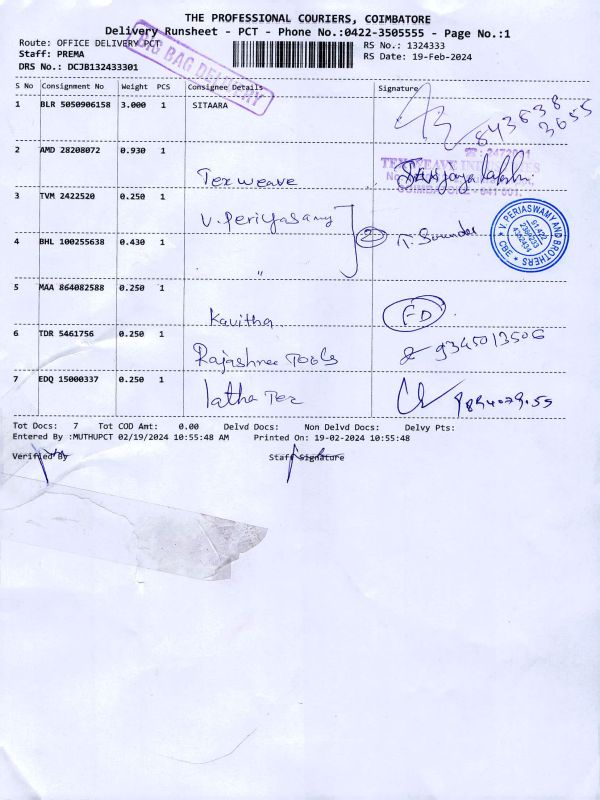 THE PROFESSIONAL COURIERS, COIMBATORE
Delivery Runsheet - PCT - Phone No.:0422-3505555 - Page No.:1
Route: OFFICE DELIVERY PCT
RS No.: 1324333
Staff: PREMA
RS Date: 19-Feb-2024
DRS No.: DCJB132433301
BIG BAG DELIVERY
S No Consignment No Weight PCS Consignee Details Signature
1 BLR 5050906158 3.000 1 SITAARA
843638
3655
2 AMD 28208072 0.930 1
Texweave
☎: 2472011
TEXWEAVE
3 TVM 2422520 0.250 1
V. Periyasamy
2
4 BHL 100255638 0.430 1
"
V PERIASWAMY AND BROTHERS
CBE
5 MAA 864082588 0.250 1
Kavitha
FD
6 TDR 5461756 0.250 1
Rajashree Tools
9345013506
7 EDQ 15000337 0.250 1
latha Tex
Tot Docs: 7 Tot COD Amt: 0.00 Delvd Docs: Non Delvd Docs: Delvy Pts:
Entered By :MUTHUPCT 02/19/2024 10:55:48 AM Printed On: 19-02-2024 10:55:48
Verified By Staff Signature